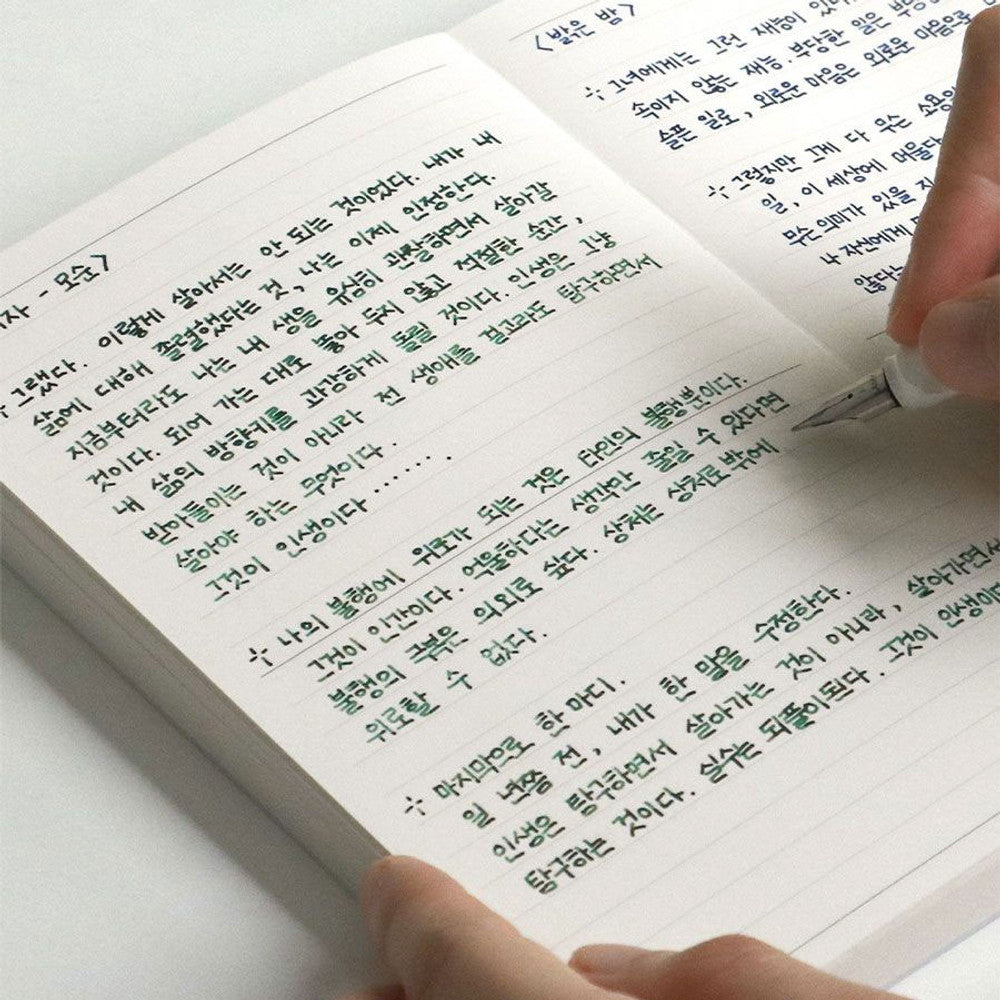 자 - 모순>
그랬다. 이렇게 살아서는 안 되는 것이었다. 내가 내
삶에 대해 졸렬했다는 것, 나는 이제 인정한다.
지금부터라도 나는 내 생을 유심히 관찰하면서 살아갈
것이다. 되어 가는 대로 놓아 두지 않고 적절한 순간,
내 삶의 방향키를 과감하게 돌릴 것이다. 인생은 그냥
받아들이는 것이 아니라 전 생애를 걸고라도 탐구하면서
살아야 하는 무엇이다.
그것이 인생이다 .......
나의 불행에 위로가 되는 것은 타인의 불행뿐이다.
그것이 인간이다. 억울하다는 생각만 줄일 수 있다면
불행의 극복은 의외로 쉽다. 상처는 상처로밖에
위로할 수 없다.
마지막으로 한 마디.
일 년쯤 전, 내가 한 말을 수정한다.
인생은 탐구하면서 살아가는 것이 아니라, 살아가면서
탐구하는 것이다. 실수는 되풀이된다. 그것이 인생이다
<밝은 밤>
그녀에게는 그런 재능이
속이지 않는 재능. 부당한 일은
슬픈 일로, 외로운 마음은 외로운 마음으로
그렇지만 그게 다 무슨
일, 이 세상에 머물다
무슨 의미가 있을지
나 자신에게
않다는